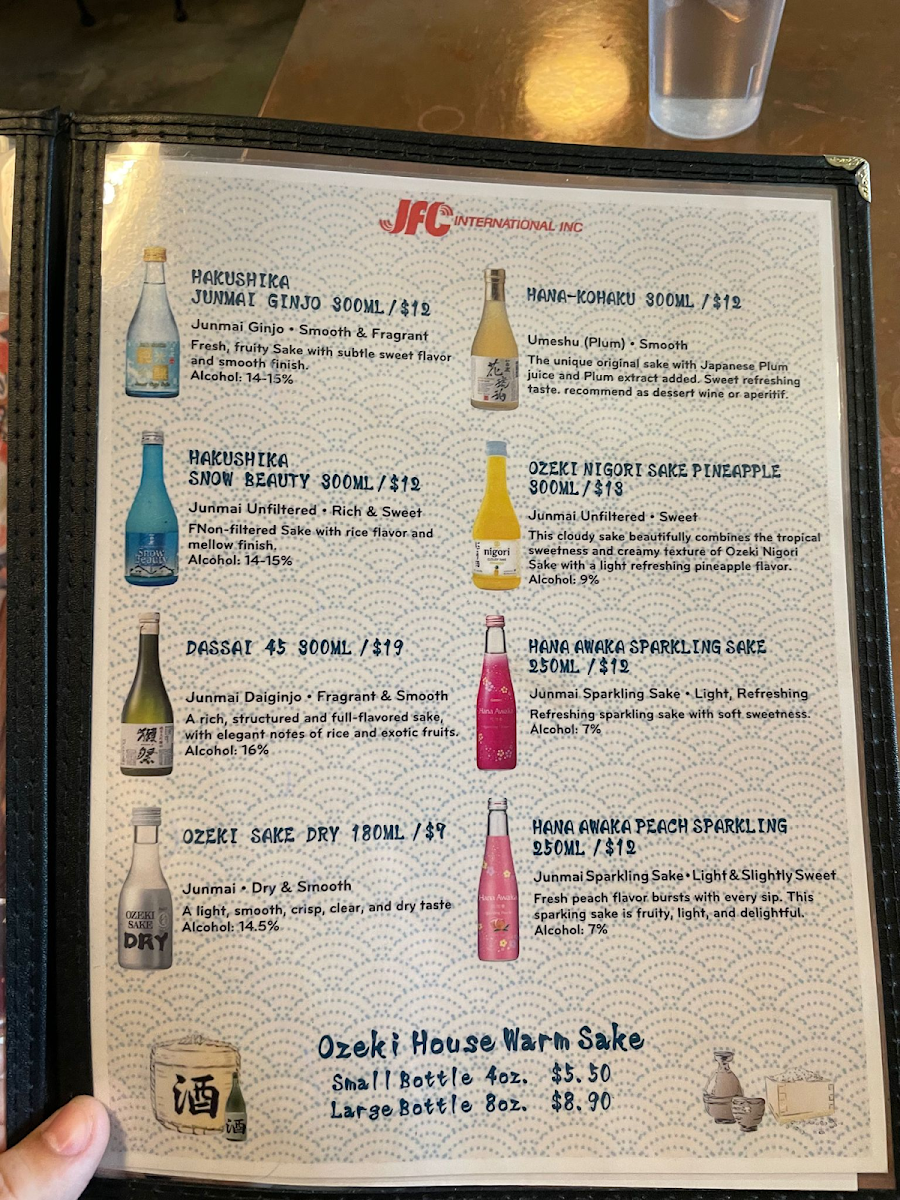 JFC INTERNATIONAL INC
HAKUSHIKA
JUNMAI GINJO 300ML / $12
Junmai Ginjo • Smooth & Fragrant
Fresh, fruity Sake with subtle sweet flavor
and smooth finish.
Alcohol: 14-15%
HAKUSHIKA
SNOW BEAUTY 300ML / $12
Junmai Unfiltered • Rich & Sweet
FNon-filtered Sake with rice flavor and
mellow finish,
Alcohol: 14-15%
Snow
Beauty
DASSAI 45 300ML / $19
Junmai Daiginjo • Fragrant & Smooth
A rich, structured and full-flavored sake,
with elegant notes of rice and exotic fruits.
Alcohol: 16%
獺
祭
OZEKI SAKE DRY 180ML / $9
Junmai • Dry & Smooth
A light, smooth, crisp, clear, and dry taste
Alcohol: 14.5%
OZEKI
SAKE
DRY
HANA-KOHAKU 300ML / $12
Umeshu (Plum) • Smooth
The unique original sake with Japanese Plum
juice and Plum extract added. Sweet refreshing
taste. recommend as dessert wine or aperitif.
花
琥
珀
OZEKI NIGORI SAKE PINEAPPLE
300ML / $13
Junmai Unfiltered • Sweet
This cloudy sake beautifully combines the tropical
sweetness and creamy texture of Ozeki Nigori
Sake with a light refreshing pineapple flavor.
Alcohol: 9%
nigori
HANA AWAKA SPARKLING SAKE
250ML / $12
Junmai Sparkling Sake • Light, Refreshing
Refreshing sparkling sake with soft sweetness.
Alcohol: 7%
Hana Awaka
HANA AWAKA PEACH SPARKLING
250ML / $12
Junmai Sparkling Sake • Light & Slightly Sweet
Fresh peach flavor bursts with every sip. This
sparking sake is fruity, light, and delightful.
Alcohol: 7%
Hana Awaka
Ozeki House Warm Sake
Small Bottle 4oz. $5.50
Large Bottle 8oz. $8.90
酒
酒